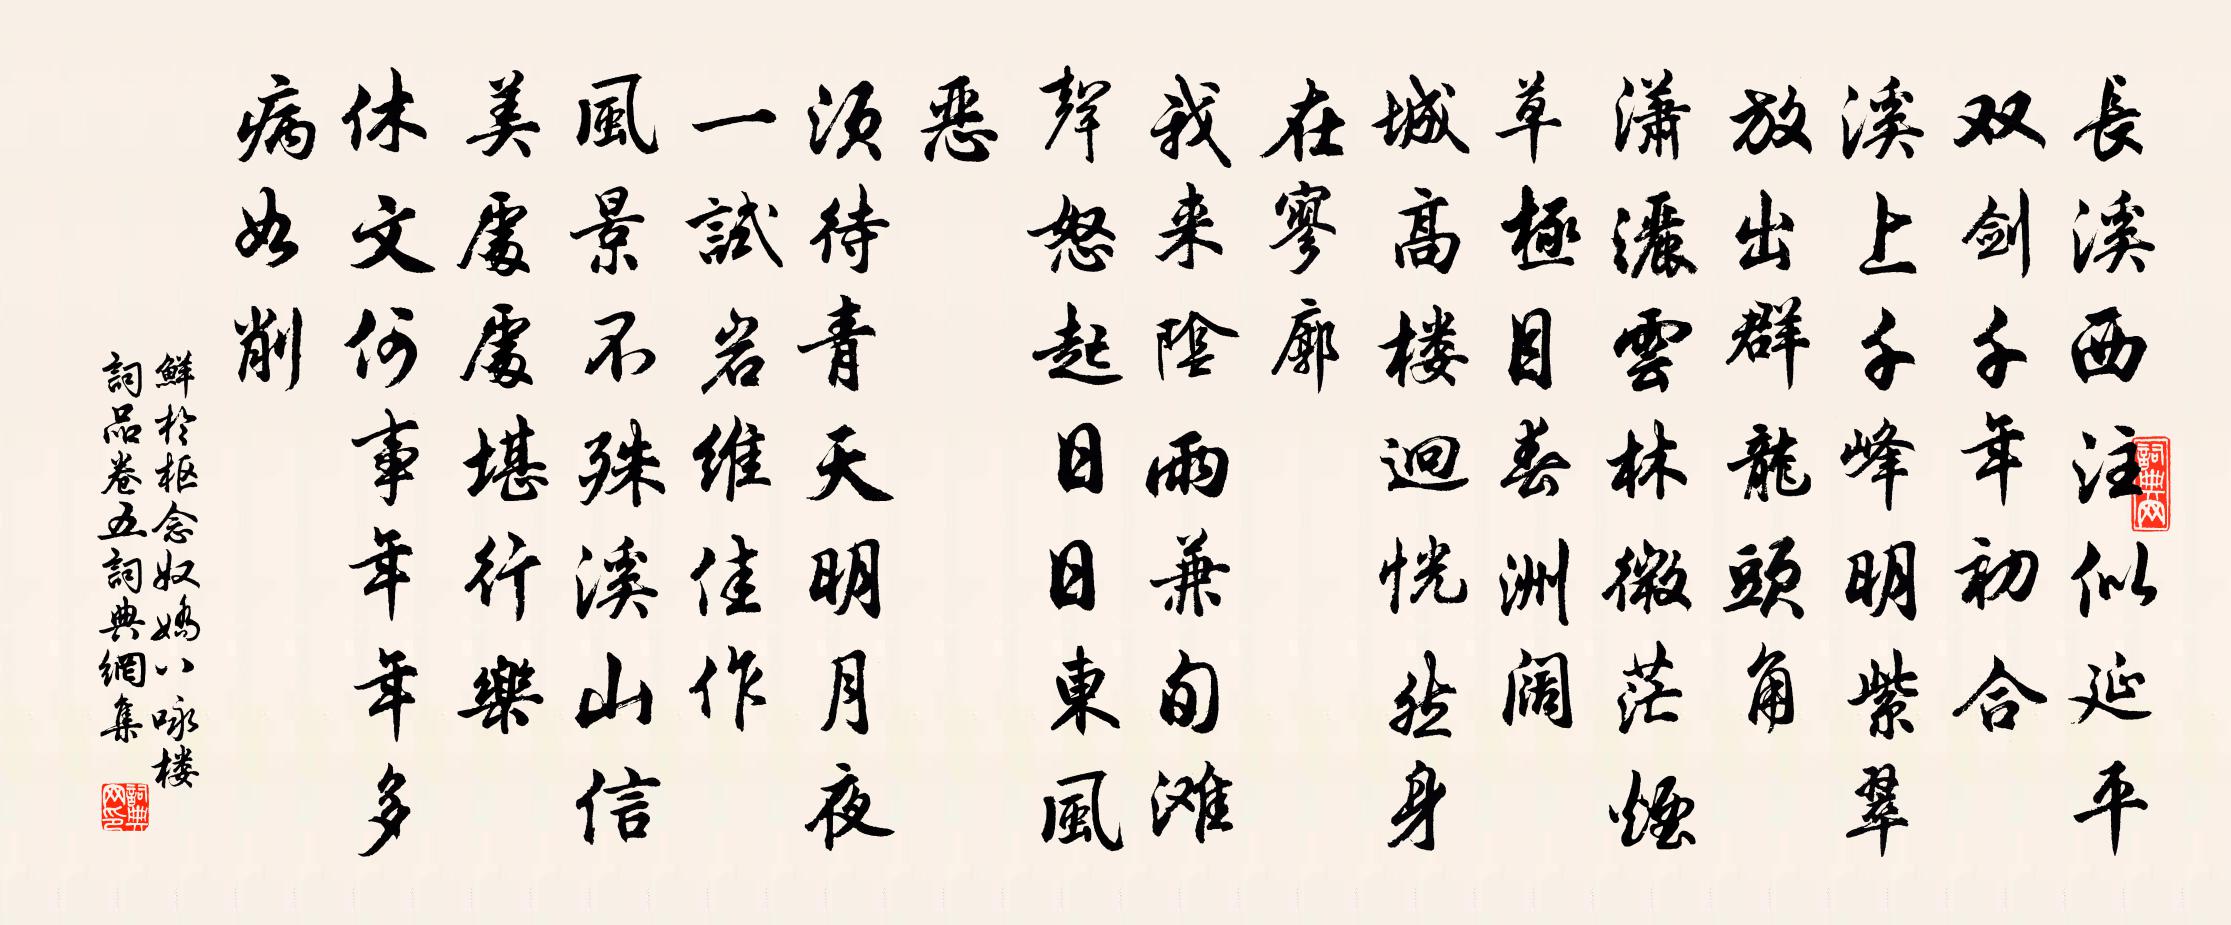 長溪西注似延平
双剑千年初合
溪上千峰明紫翠
放出群龍頭角
潇灑雲林微茫煙
草極目春洲阔
城高楼迥恍然身
在寥廓
我来陰雨兼旬滩
聲怒起日日東風
惡
须待青天明月夜
一試岩维佳作
風景不殊溪山信
美處處堪行樂
休文何事年年多
病如削
鮮於枢念奴嬌八咏楼
詞品卷五詞典網集
詞典网
詞典网印